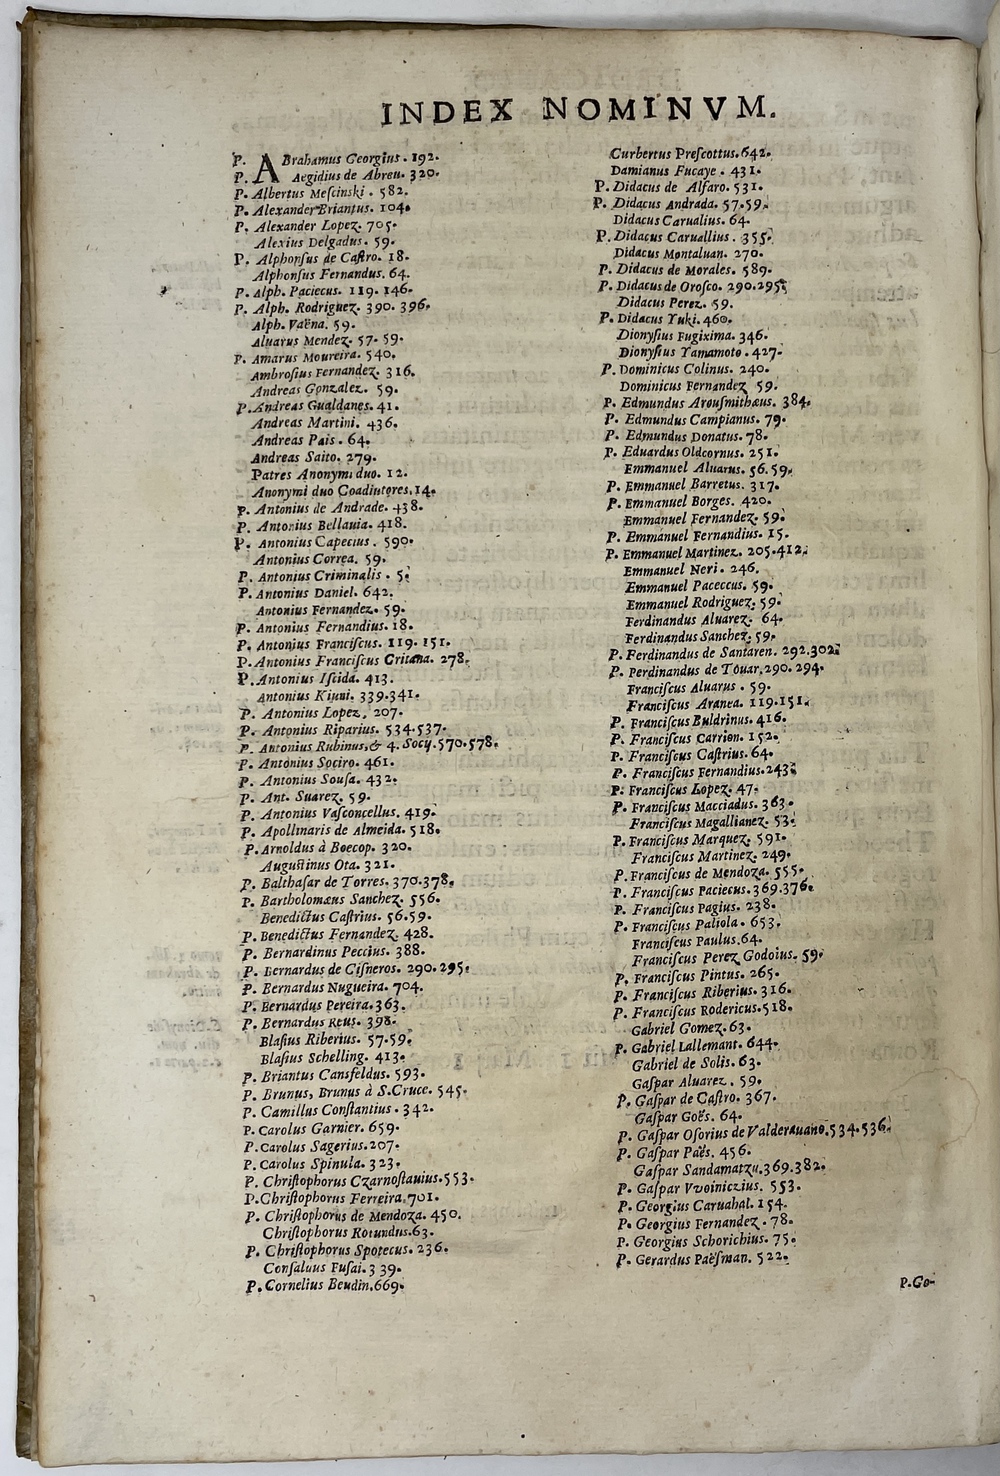 INDEX NOMINVM.
P. ABrahamus Georgius. 192.
P. Aegidius de Abreu. 320.
P. Albertus Meſcinski. 582.
P. Alexander Briantus. 104.
P. Alexander Lopez. 705.
Alexius Delgadus. 59.
P. Alphonſus de Caſtro. 18.
Alphonſus Fernandus. 64.
P. Alph. Paciecus. 119. 146.
P. Alph. Rodriguez. 390. 396.
Alph. Vaëna. 59.
Aluarus Mendez. 57. 59.
P. Amarus Moureira. 540.
Ambroſius Fernandez. 316.
Andreas Gonzalez. 59.
P. Andreas Gualdanes. 41.
Andreas Martini. 436.
Andreas Pais. 64.
Andreas Saito. 279.
Patres Anonymi duo. 12.
Anonymi duo Coadiutores. 14.
P. Antonius de Andrade. 438.
P. Antonius Bellauia. 418.
P. Antonius Capecius. 590.
Antonius Correa. 59.
P. Antonius Criminalis. 5.
P. Antonius Daniel. 642.
Antonius Fernandez. 59.
P. Antonius Fernandius. 18.
P. Antonius Franciſcus. 119. 151.
P. Antonius Franciſcus Critana. 278.
P. Antonius Iſcida. 413.
Antonius Kiuni. 339.341.
P. Antonius Lopez. 207.
P. Antonius Riparius. 534.537.
P. Antonius Rubinus, & 4. Socy. 570.578.
P. Antonius Sociro. 461.
P. Antonius Souſa. 432.
P. Ant. Suarez. 59.
P. Antonius Vaſconcellus. 419.
P. Apollinaris de Almeida. 518.
P. Arnoldus à Boecop. 320.
Auguſtinus Ota. 321.
P. Balthaſar de Torres. 370.378.
P. Bartholomæus Sanchez. 556.
Benedictus Caſtrius. 56.59.
P. Benedictus Fernandez. 428.
P. Bernardinus Peccius. 388.
P. Bernardus de Ciſneros. 290.295.
P. Bernardus Nugueira. 704.
P. Bernardus Pereira. 363.
P. Bernardus Reus. 398.
Blaſius Riberius. 57.59.
Blaſius Schelling. 413.
P. Briantus Cansfeldus. 593.
P. Brunus, Brunus à S.Cruce. 545.
P. Camillus Conſtantius. 342.
P. Carolus Garnier. 659.
P. Carolus Sagerius. 207.
P. Carolus Spinula. 323.
P. Chriſtophorus Czarnoſtauius. 553.
P. Chriſtophorus Ferreira. 701.
P. Chriſtophorus de Mendoza. 450.
Chriſtophorus Rotundus. 63.
P. Chriſtophorus Spotecus. 236.
Conſaluus Fuſai. 339.
P. Cornelius Beudin. 669.
Curbertus Preſcottus. 642.
Damianus Fucaye. 431.
P. Didacus de Alfaro. 531.
P. Didacus Andrada. 57.59.
Didacus Carualius. 64.
P. Didacus Caruallius. 355.
Didacus Montaluan. 270.
P. Didacus de Morales. 589.
P. Didacus de Oroſco. 290.295.
Didacus Perez. 59.
P. Didacus Yuki. 460.
Dionyſius Fugixima. 346.
Dionyſius Yamamoto. 427.
P. Dominicus Colinus. 240.
Dominicus Fernandez 59.
P. Edmundus Arouſmithæus. 384.
P. Edmundus Campianus. 79.
P. Edmundus Donatus. 78.
P. Eduardus Oldcornus. 251.
Emmanuel Aluarus. 56.59.
P. Emmanuel Barretus. 317.
P. Emmanuel Borges. 420.
Emmanuel Fernandez. 59.
P. Emmanuel Fernandius. 15.
P. Emmanuel Martinez. 205.412.
Emmanuel Neri. 246.
Emmanuel Paceccus. 59.
Emmanuel Rodriguez. 59.
Ferdinandus Aluarez. 64.
Ferdinandus Sanchez. 59.
P. Ferdinandus de Santaren. 292.302.
P. Ferdinandus de Touar. 290. 294.
Franciſcus Aluarus. 59.
Franciſcus Aranea. 119.151.
P. Franciſcus Buldrinus. 416.
P. Franciſcus Carrion. 152.
P. Franciſcus Caſtrius. 64.
P. Franciſcus Fernandius. 243.
P. Franciſcus Lopez. 47.
P. Franciſcus Macciadus. 363.
Franciſcus Magallianez. 53.
P. Franciſcus Marquez. 591.
Franciſcus Martinez. 249.
P. Franciſcus de Mendoza. 555.
P. Franciſcus Paciecus. 369.376.
P. Franciſcus Pagius. 238.
P. Franciſcus Paliola. 653.
Franciſcus Paulus. 64.
Franciſcus Perez Godoius. 59.
P. Franciſcus Pintus. 265.
P. Franciſcus Riberius. 316.
P. Franciſcus Rodericus. 518.
Gabriel Gomez. 63.
P. Gabriel Lallemant. 644.
Gabriel de Solis. 63.
Gaſpar Aluarez. 59.
P. Gaſpar de Caſtro. 367.
Gaſpar Goës. 64.
P. Gaſpar Oſorius de Valderauano. 534.536.
P. Gaſpar Paës. 456.
Gaſpar Sandamatzu. 369.382.
P. Gaſpar Vvoiniczius. 553.
P. Georgius Caruahal. 154.
P. Georgius Fernandez. 78.
P. Georgius Schorichius. 75.
P. Gerardus Paëſman. 522.
P. Go-